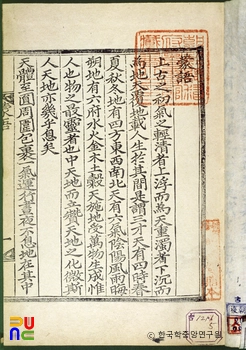 蒙語
上古之初氣之輕清者上浮而爲天重濁者下沉而
爲地天覆地載人生於其間是謂三才天有四時春
夏秋冬地有四方東西南北天有六氣陰陽風雨晦
明地有六府水火金木土穀天施地受萬物生成惟
人也物之最靈者也中天地而立贊天地之化微斯
人天地亦幾乎息矣
天體至圓周圍包裹一氣運行亘古不息地在其中
蒙語
一
PUNC
한국학중앙연구원